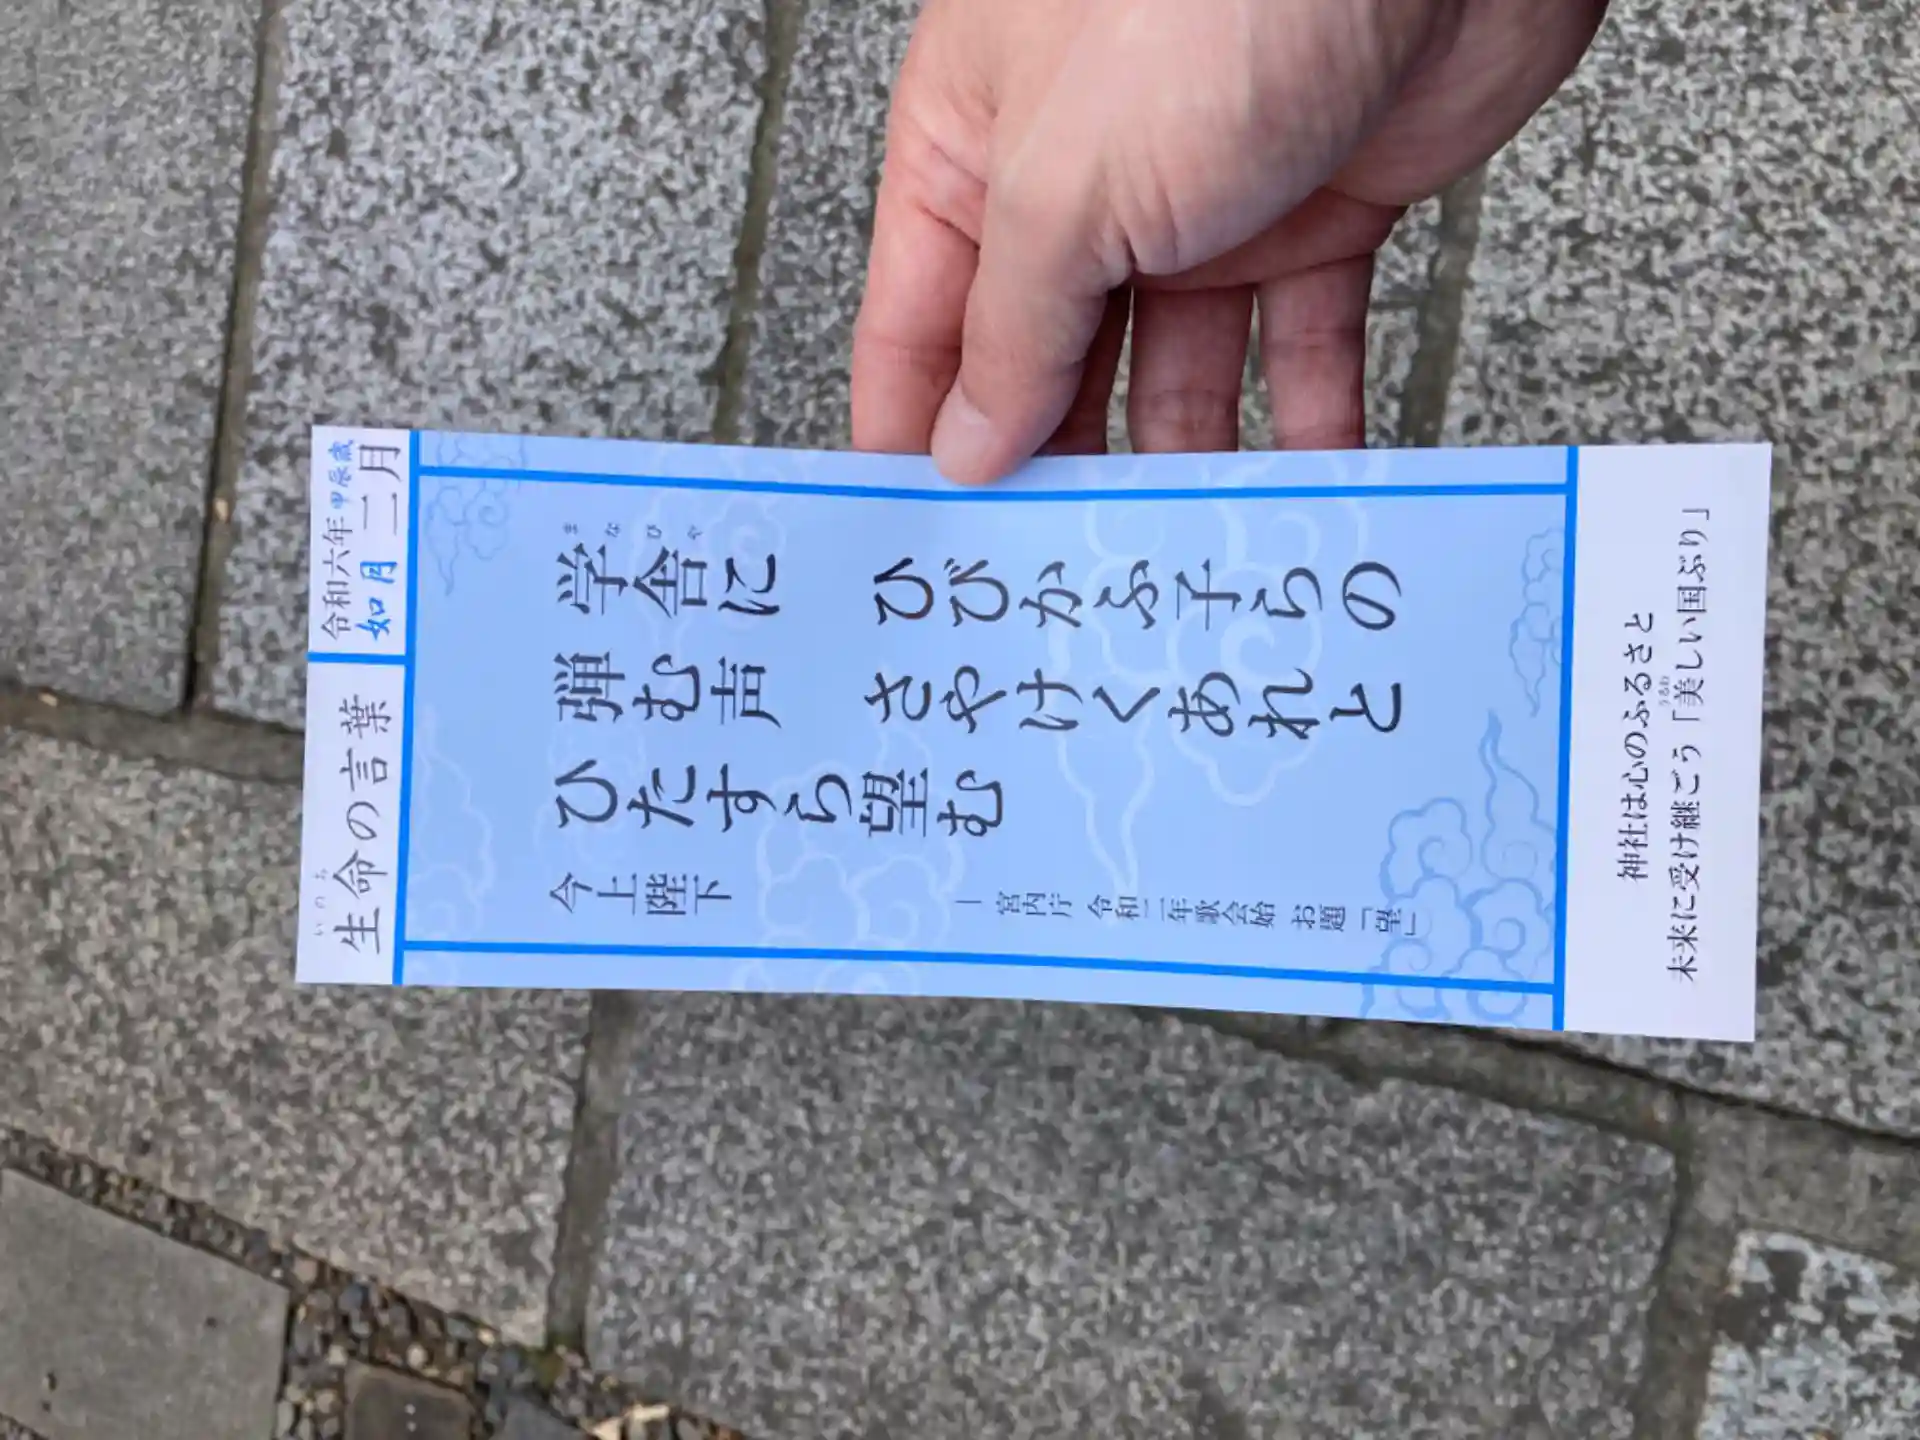 令和六年甲辰歳
如月 二月
生命の言葉
いのち
学舎に ひびかふ子らの
まなびや
弾む声 さやけくあれと
ひたすら望む
今上陛下
― 宮内庁 令和二年歌会始 お題「望」
神社は心のふるさと
未来に受け継ごう「美しい国ぶり」
うるわ